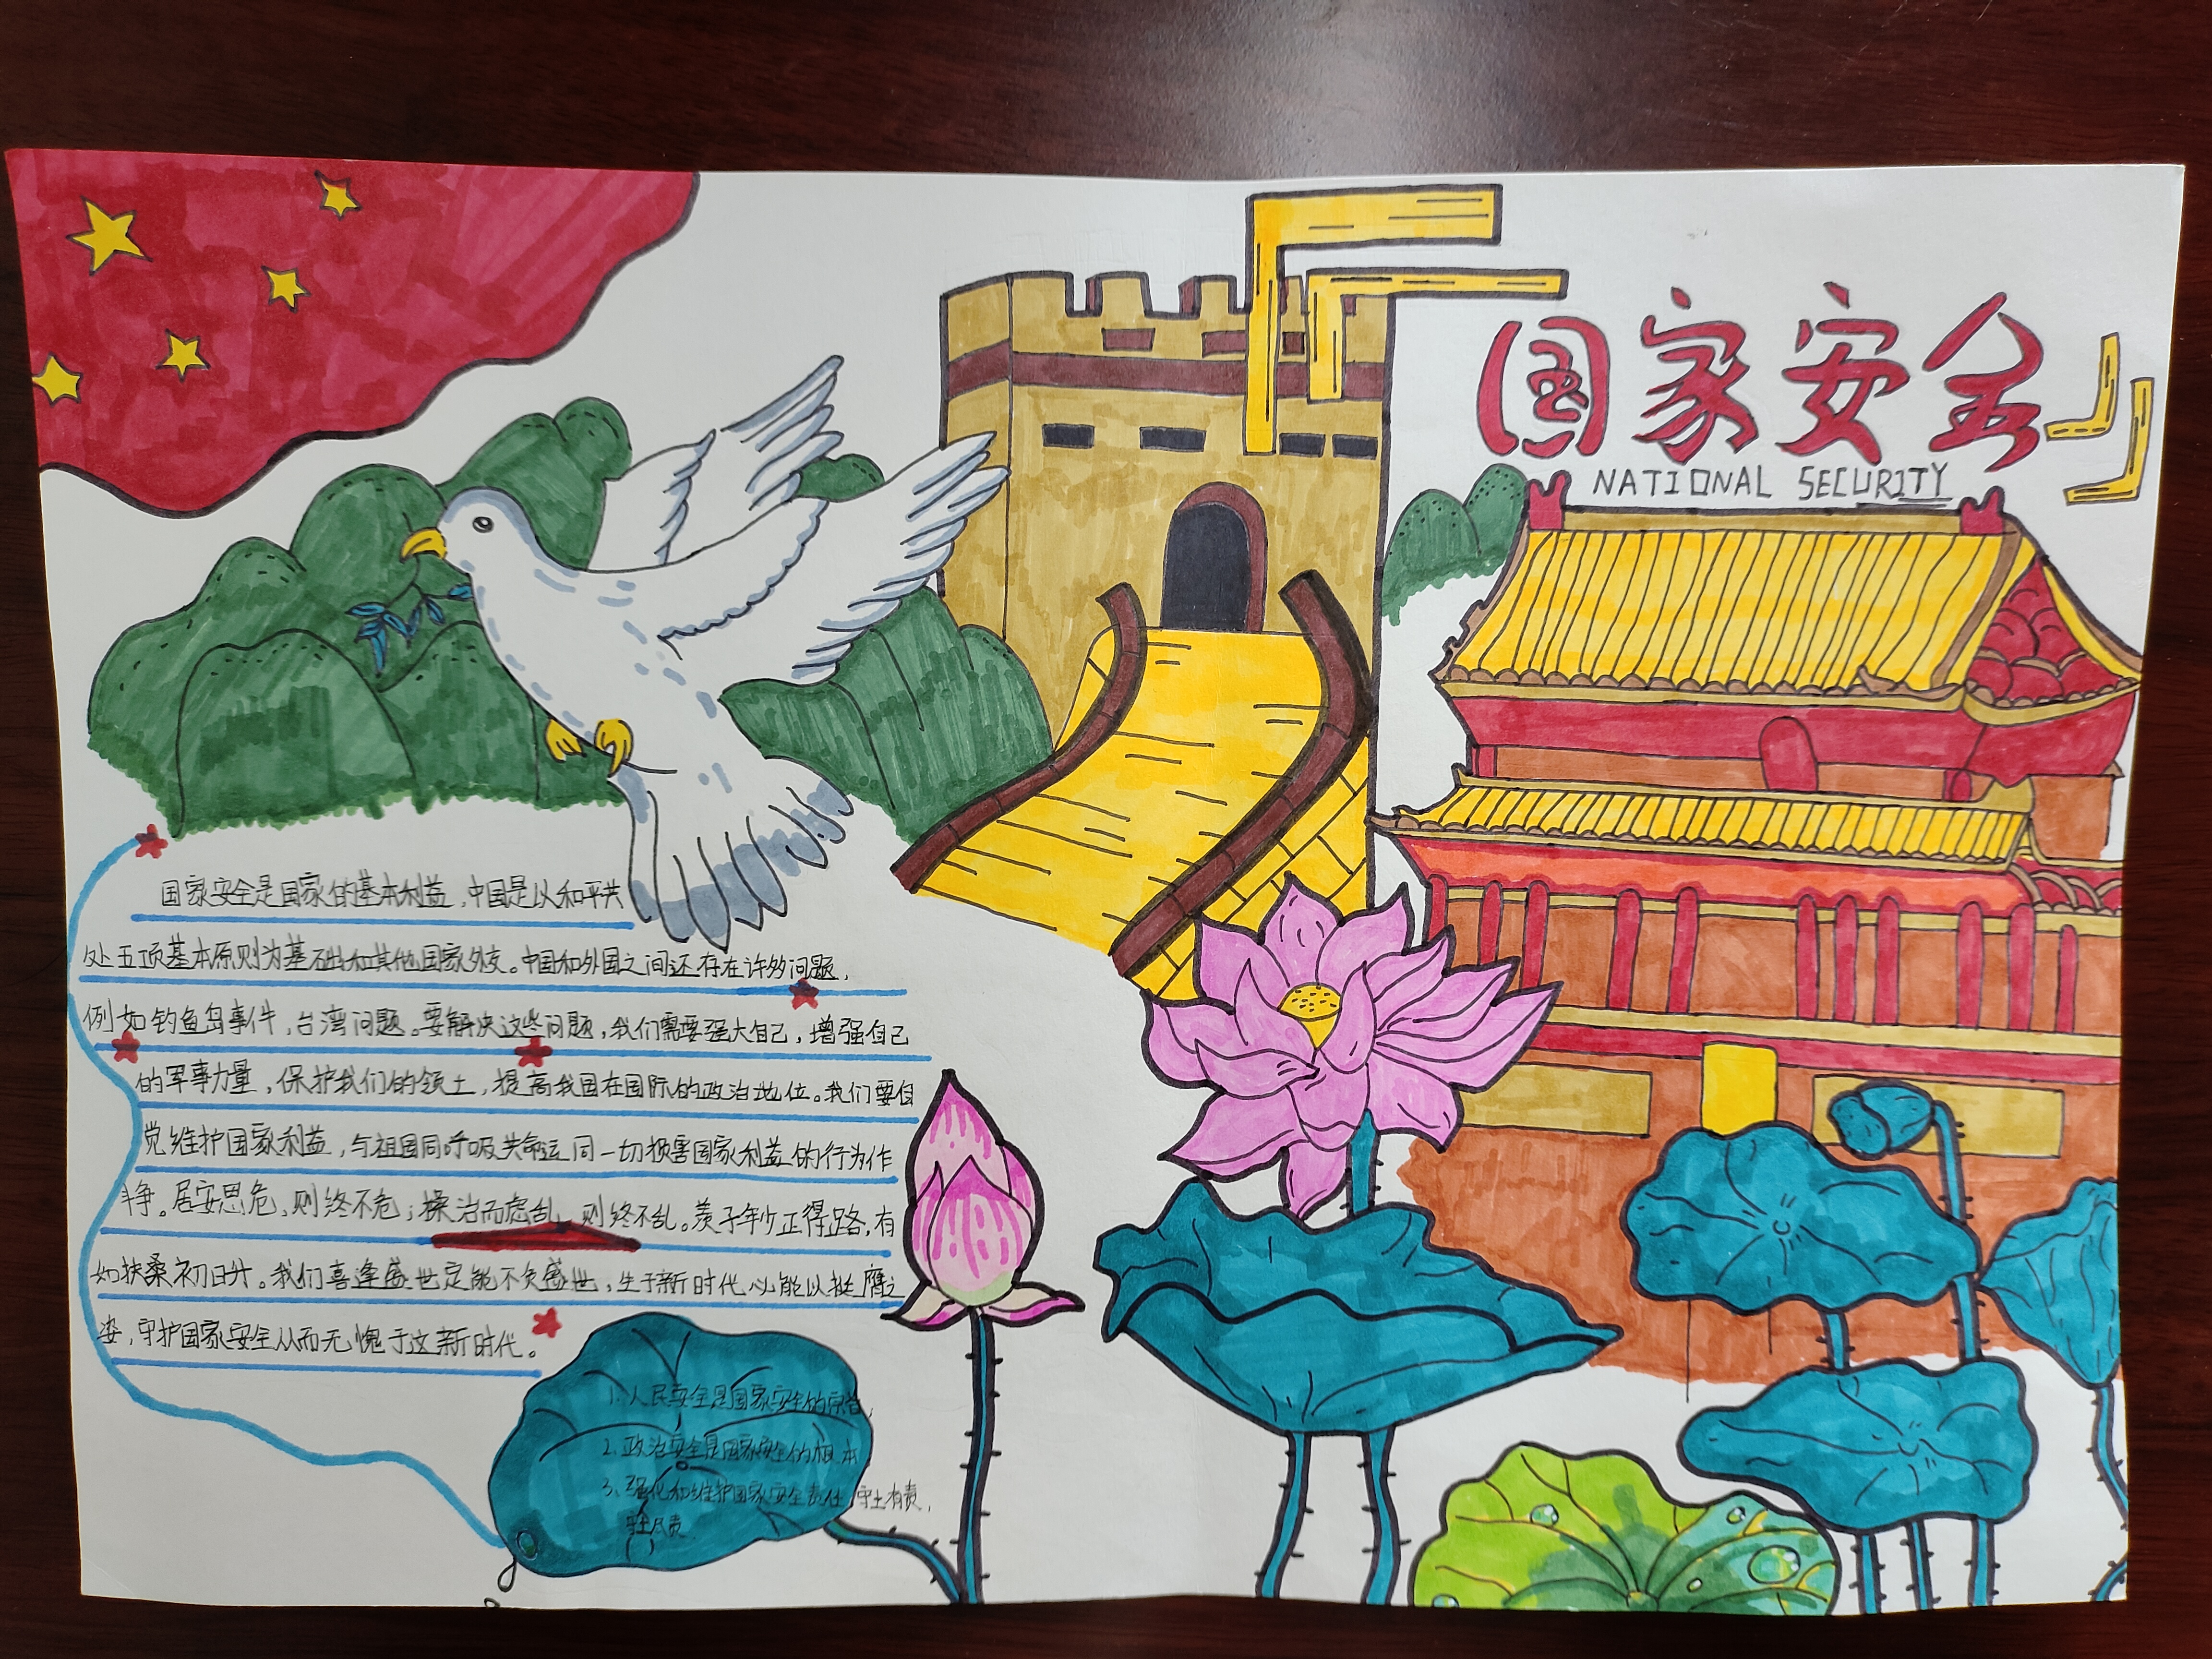 国家安全
NATIONAL SECURITY
国家安全是国家的基本利益,中国是以和平共
处五项基本原则为基础和其他国家外交。中国和外国之间还存在许多问题,
例如钓鱼岛事件,台湾问题。要解决这些问题,我们需要强大自己,增强自己
的军事力量,保护我们的领土,提高我国在国际的政治地位。我们要自
觉维护国家利益,与祖国同呼吸共命运同一切损害国家利益的行为作
斗争。居安思危,则终不危;操治而虑乱,则终不乱。羡子年少正得路,有
如扶桑初日升。我们喜逢盛世定能不负盛世,生于新时代必能以挺膺之
姿,守护国家安全从而无愧于这新时代。
1.人民安全是国家安全的宗旨,
2.政治安全是国家安全的根本
3.强化和维护国家安全责任,守土有责,
尽责